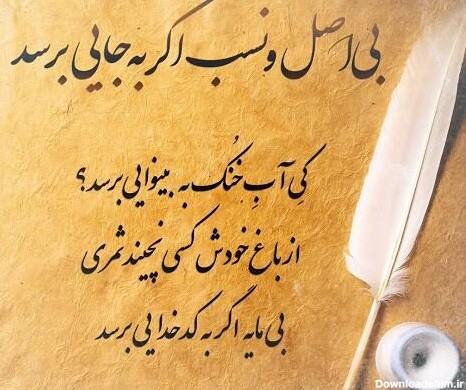 بی اصل و نسب اگر به جایی برسد
کیِ آبِ خُنک به بینوایی برسد؟
از باغ خودش کسی نچیند ثمری
بی مایه اگر به کدخدایی برسد
Downloadefilm.ir